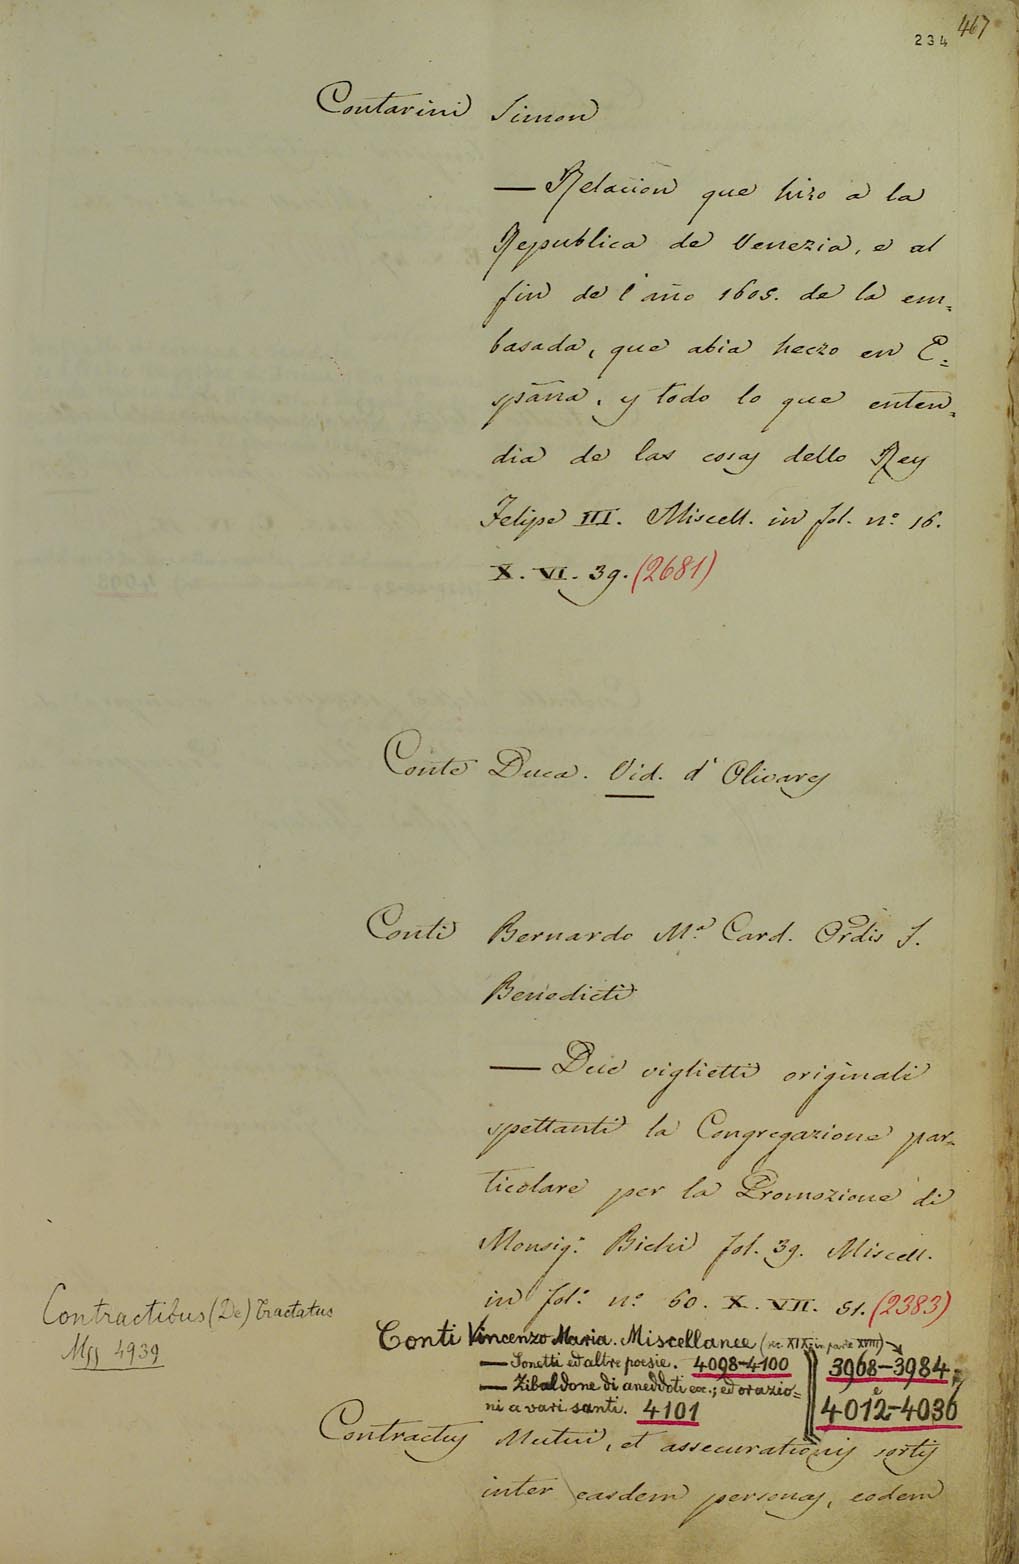 467
234
Contarini Simon
— Relacion que hizo a la
Republica de Venezia, e al
fin de l'año 1605. de la em=
basada, que abia heczo en E=
spãna, y todo lo que enten=
dia de las cosas dello Rey
Felipe III. Miscell. in fol. n.° 16.
X. VI. 39. (2681)
Conte Duca. Vid. d'Olivares
Conti Bernardo M.ª Card. Ordis S.
Benedicti
— Due viglietti originali
spettanti la Congregazione par=
ticolare per la Promozione di
Monsig.r Bichi fol. 39. Miscell.
in fol.° n.° 60. X. VII. 51. (2383)
Contractibus (De) Tractatus
Mss 4939
Conti Vincenzo Maria. Miscellanee (sec. XIX, in parte XVIII)
— Sonetti ed altre poesie. 4098-4100
— Zibaldone di aneddoti ecc.; ed orazio=
ni a vari santi. 4101
3968-3984;
e
4012-4036
Contractus Mutui, et assecurationis sortis
inter easdem personas, eodem